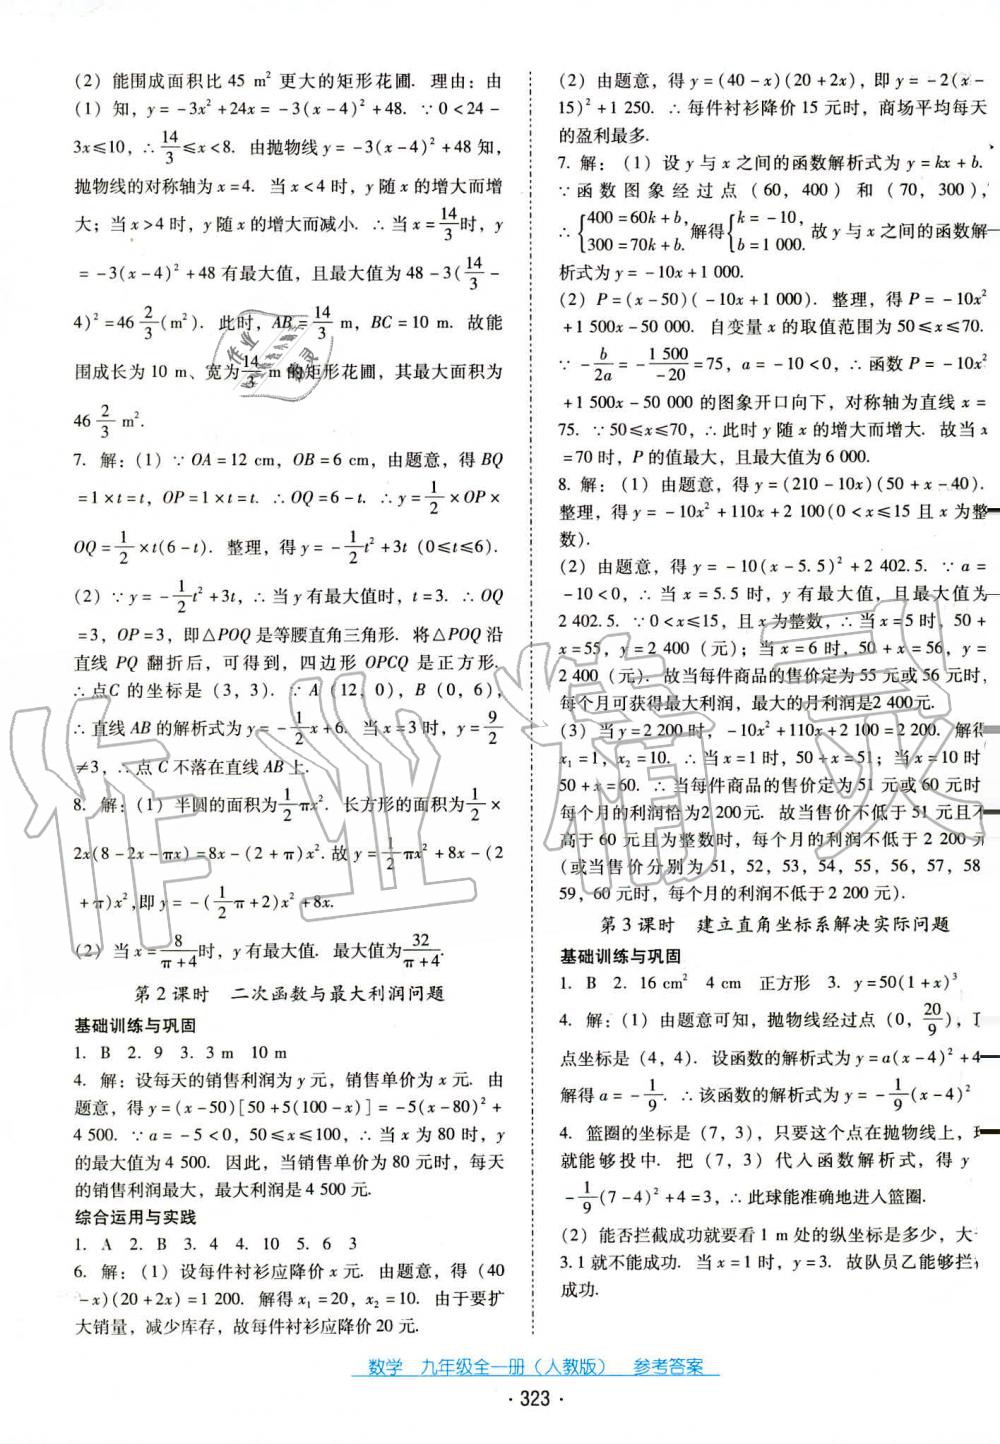 (2) 能围成面积比 45 m² 更大的矩形花圃. 理由: 由
(1) 知, y=-3x²+24x=-3(x-4)²+48. ∵0<24-
3x≤10, ∴14/3≤x<8. 由抛物线 y=-3(x-4)²+48 知,
抛物线的对称轴为 x=4. 当 x<4 时, y 随 x 的增大而增
大; 当 x>4 时, y 随 x 的增大而减小. ∴当 x=14/3时, y
=-3(x-4)²+48 有最大值, 且最大值为 48-3(14/3-
4)²=46 2/3(m²). 此时, AB=14/3 m, BC=10 m. 故能
围成长为 10 m、宽为14/3 m 的矩形花圃, 其最大面积为
46 2/3 m².
7. 解: (1) ∵OA=12 cm, OB=6 cm, 由题意, 得 BQ
=1×t=t, OP=1×t=t. ∴OQ=6-t. ∴y=1/2×OP×
OQ=1/2×t(6-t). 整理, 得 y=-1/2t²+3t (0≤t≤6).
(2) ∵y=-1/2t²+3t, ∴当 y 有最大值时, t=3. ∴OQ
=3, OP=3, 即△POQ 是等腰直角三角形. 将△POQ 沿
直线 PQ 翻折后, 可得到, 四边形 OPCQ 是正方形.
∴点C 的坐标是 (3, 3). ∵A (12, 0), B (0, 6),
∴直线 AB 的解析式为 y=-1/2x+6. 当 x=3 时, y=9/2
≠3, ∴点 C 不落在直线 AB 上.
8. 解: (1) 半圆的面积为1/2πx². 长方形的面积为1/2×
2x(8-2x-πx)=8x-(2+π)x². 故 y=1/2πx²+8x-(2
+π)x², 即 y=-(1/2π+2)x²+8x.
(2) 当 x=8/(π+4)时, y 有最大值. 最大值为32/(π+4).
第 2 课时 二次函数与最大利润问题
基础训练与巩固
1. B 2. 9 3. 3 m 10 m
4. 解: 设每天的销售利润为 y 元, 销售单价为 x 元. 由
题意, 得 y=(x-50)[50+5(100-x)]=-5(x-80)²+
4 500. ∵a=-5<0, 50≤x≤100, ∴当 x=80 时, y
的最大值为 4 500. 因此, 当销售单价为 80 元时, 每天
的销售利润最大, 最大利润是 4 500 元.
综合运用与实践
1. A 2. B 3. 4 4. 10 5. 6 3
6. 解: (1) 设每件衬衫应降价 x 元. 由题意, 得 (40
-x)(20+2x)=1 200. 解得 x₁=20, x₂=10. 由于要扩
大销量, 减少库存, 故每件衬衫应降价 20 元.
(2) 由题意, 得 y=(40-x)(20+2x), 即 y=-2(x-
15)²+1 250. ∴每件衬衫降价 15 元时, 商场平均每天
的盈利最多.
7. 解: (1) 设 y 与 x 之间的函数解析式为 y=kx+b.
∵函数图象经过点 (60, 400) 和 (70, 300),
∴{400=60k+b, 300=70k+b. 解得{k=-10, b=1 000. 故 y 与 x 之间的函数解
析式为 y=-10x+1 000.
(2) P=(x-50)(-10x+1 000). 整理, 得 P=-10x²
+1 500x-50 000. 自变量 x 的取值范围为 50≤x≤70.
∵-b/2a=-1 500/-20=75, a=-10<0, ∴函数 P=-10x²
+1 500x-50 000 的图象开口向下, 对称轴为直线 x=
75. ∵50≤x≤70, ∴此时 y 随 x 的增大而增大. 故当 x
=70 时, P 的值最大, 且最大值为 6 000.
8. 解: (1) 由题意, 得 y=(210-10x)(50+x-40).
整理, 得 y=-10x²+110x+2 100(0<x≤15 且 x 为整
数).
(2) 由题意, 得 y=-10(x-5.5)²+2 402.5. ∵a=
-10<0, ∴当 x=5.5 时, y 有最大值, 且最大值为
2 402.5. ∵0<x≤15, 且 x 为整数, ∴当 x=5 时, 50+
x=55, y=2 400 (元); 当 x=6 时, 50+x=56, y=
2 400 (元). 故当每件商品的售价定为 55 元或 56 元时,
每个月可获得最大利润, 最大的月利润是2 400元.
(3) 当 y=2 200 时, -10x²+110x+2 100=2 200. 解得
x₁=1, x₂=10. ∴当 x=1 时, 50+x=51; 当 x=10 时
50+x=60. ∴当每件商品的售价定为 51 元或 60 元时,
每个月的利润恰为2 200元. 故当售价不低于 51 元且不
高于 60 元且为整数时, 每个月的利润不低于 2 200 元
(或当售价分别为 51, 52, 53, 54, 55, 56, 57, 58
59, 60 元时, 每个月的利润不低于 2 200 元).
第 3 课时 建立直角坐标系解决实际问题
基础训练与巩固
1. B 2. 16 cm² 4 cm 正方形 3. y=50(1+x)³
4. 解: (1) 由题意可知, 抛物线经过点 (0, 20/9), 顶
点坐标是 (4, 4). 设函数的解析式为 y=a(x-4)²+4
解得 a=-1/9. ∴该函数的解析式为 y=-1/9(x-4)²
4. 篮圈的坐标是 (7, 3), 只要这个点在抛物线上,
就能够投中. 把 (7, 3) 代入函数解析式, 得 y
-1/9(7-4)²+4=3, ∴此球能准确地进入篮圈.
(2) 能否拦截成功就要看 1 m 处的纵坐标是多少, 大于
3.1 就不能成功. 当 x=1 时, y=3. 故队员乙能够拦
成功.
数学 九年级全一册(人教版) 参考答案
· 323 ·
作业精灵